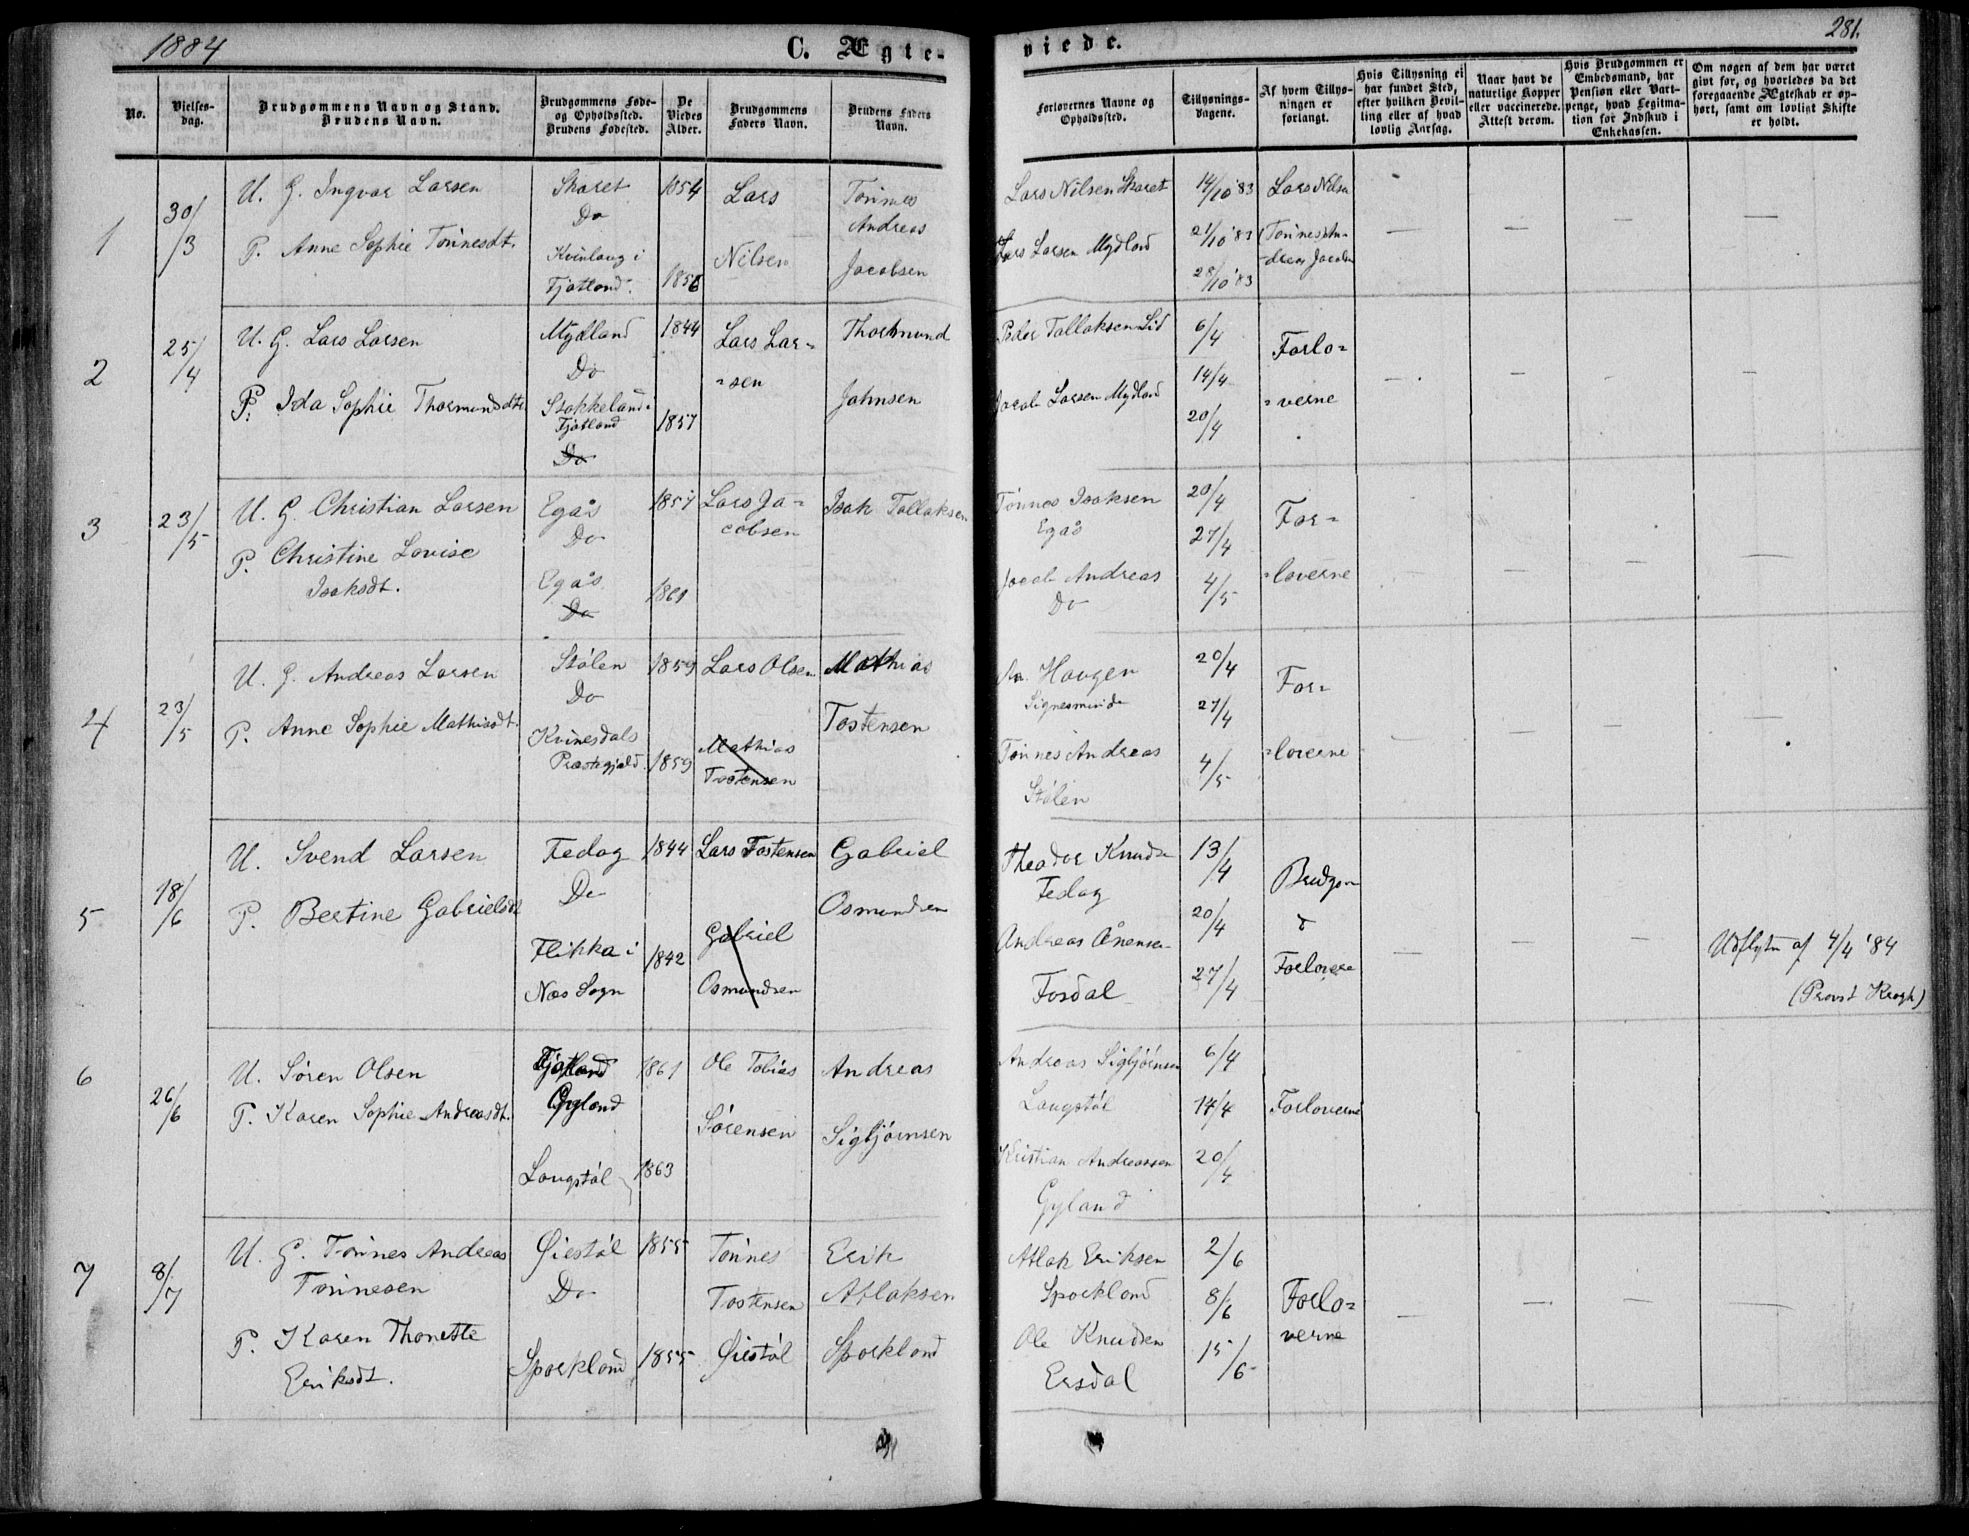 1884
C. Ægte-
viede.
281.
No.
Vielses-
dag.
Brudgommens Navn og Stand.
Brudens Navn.
Brudgommens Føde-
og Opholdssted.
Brudens Fødested.
De
Viedes
Alder.
Brudgommens
Faders Navn.
Brudens Faders
Navn.
Forlovernes Navne og
Opholdssted.
Tillysnings-
dagene.
Af hvem Tillys-
ningen er
forlangt.
Hvis Tillysning ei
har fundet Sted,
efter hvilken Bevil-
ling eller af hvad
lovlig Aarsag.
Naar havt de
naturlige Kopper
eller vaccinerede.
Attest derom.
Hvis Brudgommen er
Embedsmand, har
Pension eller Vart-
penge, hvad Legitima-
tion for Indskud i
Enkekassen.
Om nogen af dem har været
givt før, og hvorledes da det
foregaaende Ægteskab er op-
hørt, samt om lovligt Skifte
er holdt.
1
30/3
U. G. Ingvar Larsen
P. Anne Sophie Tønnesdt.
Skaret
Do
Kvinlaug i
Fjotland.
1854
1856
Lars
Nilsen
Tønnes
Andreas
Jacobsen
Lars Nilsen Skaret
Lars Larsen Mydland
14/10 '83
21/10 '83
28/10 '83
Lars Nilsen
Tønnes An-
dreas Jacobsen
2
25/4
U. G. Lars Larsen
P. Ida Sophie Thormundsdt.
Mydland
Do
Stakkeland i
Fjotland
Do
1844
1857
Lars Lar-
-sen
Thormund
Johnsen
Peder Tallaksen Lid
Jacob Larsen Mydland
6/4
14/4
20/4
Forlo-
-verne
3
23/5
U. G. Christian Larsen
P. Christine Lovise
Isaksdt.
Egås
Do
Egås
Do
1857
1861
Lars Ja-
cobsen
Isak Tallaksen
Tønnes Isaksen
Egås
Jacob Andreas
Do
20/4
27/4
4/5
For-
-loverne
4
23/5
U. G. Andreas Larsen
P. Anne Sophie Mathiasdt.
Stølen
Do
Kvinesdals
Præstegjeld.
1859
1859
Lars Olsen
Mathias
Tostensen
Mathias
Tostensen
Haugen
Tønnes Andreas
Stølen
20/4
27/4
4/5
For-
-loverne
5
18/6
U. Svend Larsen
P. Bertine Gabrielsdt
Fedog
Do
Flikka i
Næs Sogn
1844
1842
Lars Tostensen
Gabriel
Osmundsen
Gabriel
Osmundsen
Theodor Knudsen
Fedog
Andreas Ånensen
Fosdal
13/4
20/4
27/4
Brudgom
Forlovere
Udflytn af 4/4 '84
(Provst Krogh)
6
26/6
U. Søren Olsen
P. Karen Sophie Andreasdt.
Fjotland
Gyland
Langstøl
1861
1863
Ole Tobias
Sørensen
Andreas
Sigbjørnsen
Andreas Sigbjørnsen
Langstøl
Kristian Andreassen
Gyland
6/4
14/4
20/4
Forloverne
7
8/7
U. G. Tønnes Andreas
Tønnesen
P. Karen Thonette
Eriksdt.
Øiestøl
Do
Sporkland
1855
1855
Tønnes
Tostensen
Øiestøl
Erik
Atlaksen
Sporkland
Atlak Eriksen
Sporkland
Ole Knudsen
Ersdal
2/6
8/6
15/6
Forlo-
verne